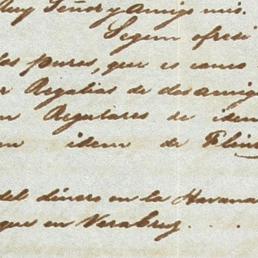 Muy Señor y Amigo mio.
Segun ofresi
los puros, que es como
r Regalias de dos amig
n Regulares de idem
n idem de Flin
del dinero en la Havana
que en Veracruz. . . .